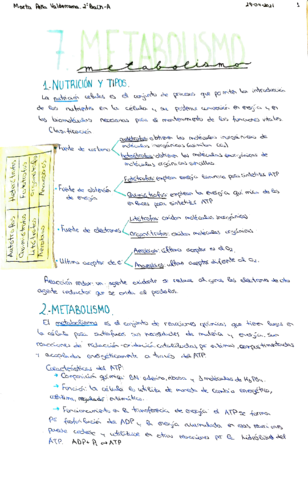 Marta Peña Valderrama. 2ºBach-A
1
7. METABOLISMO
metabolismo
1. NUTRICIÓN Y TIPOS.
La nutrición celular es el conjunto de procesos que permiten la introducción
de los nutrientes en la célula y su posterior conversión en energía y en
las biomoléculas necesarias para el mantenimiento de las funciones vitales
Clasificación
Fuente de carbono
autótrofos obtienen las moléculas inorgánicas de
moléculas inorgánicas
heterótrofos obtienen las moléculas orgánicas de
moléculas orgánicas sencillas
Fuente de obtención
de energía
Fototrofos emplean energía lumínica para sintetizar ATP
Quimiotrofos emplean la energía química de los
enlaces para sintetizar ATP
Fuente de electrones
Litotrofos oxidan moléculas inorgánicas
organotrofos oxidan moléculas orgánicas
Último aceptor de e⁻
Aerobios: último aceptor es el O₂
Anaerobios: último aceptor diferente al O₂.
Autótrofos Heterótrofos
Quimiotrofos Fototrofos
Litotrofos Organotrofos
Aerobios Anaerobios
Reacción redox: un agente oxidante se reduce al ganar los electrones de otro
agente reductor que se oxida al perderlos.
2-METABOLISMO.
El metabolismo es el conjunto de reacciones químicas que tienen lugar en
la célula para satisfacer sus necesidades de materia y energía. Son
reacciones de reducción-oxidación catalizadas por enzimas
y acopladas energéticamente a través del ATP.
Características del ATP:
→ Composición química: BN adenina, ribosa y 3 moléculas de H₃PO₄.
→ Función: la célula lo utiliza de moneda de cambio energético,
→ Funcionamiento: en la transferencia de energía el ATP se forma
por fosforilación del ADP y la energía acumulada en esas uniones
puede cederse y utilizarse en otras reacciones por la hidrólisis del
ATP. ADP + Pᵢ ⇌ ATP